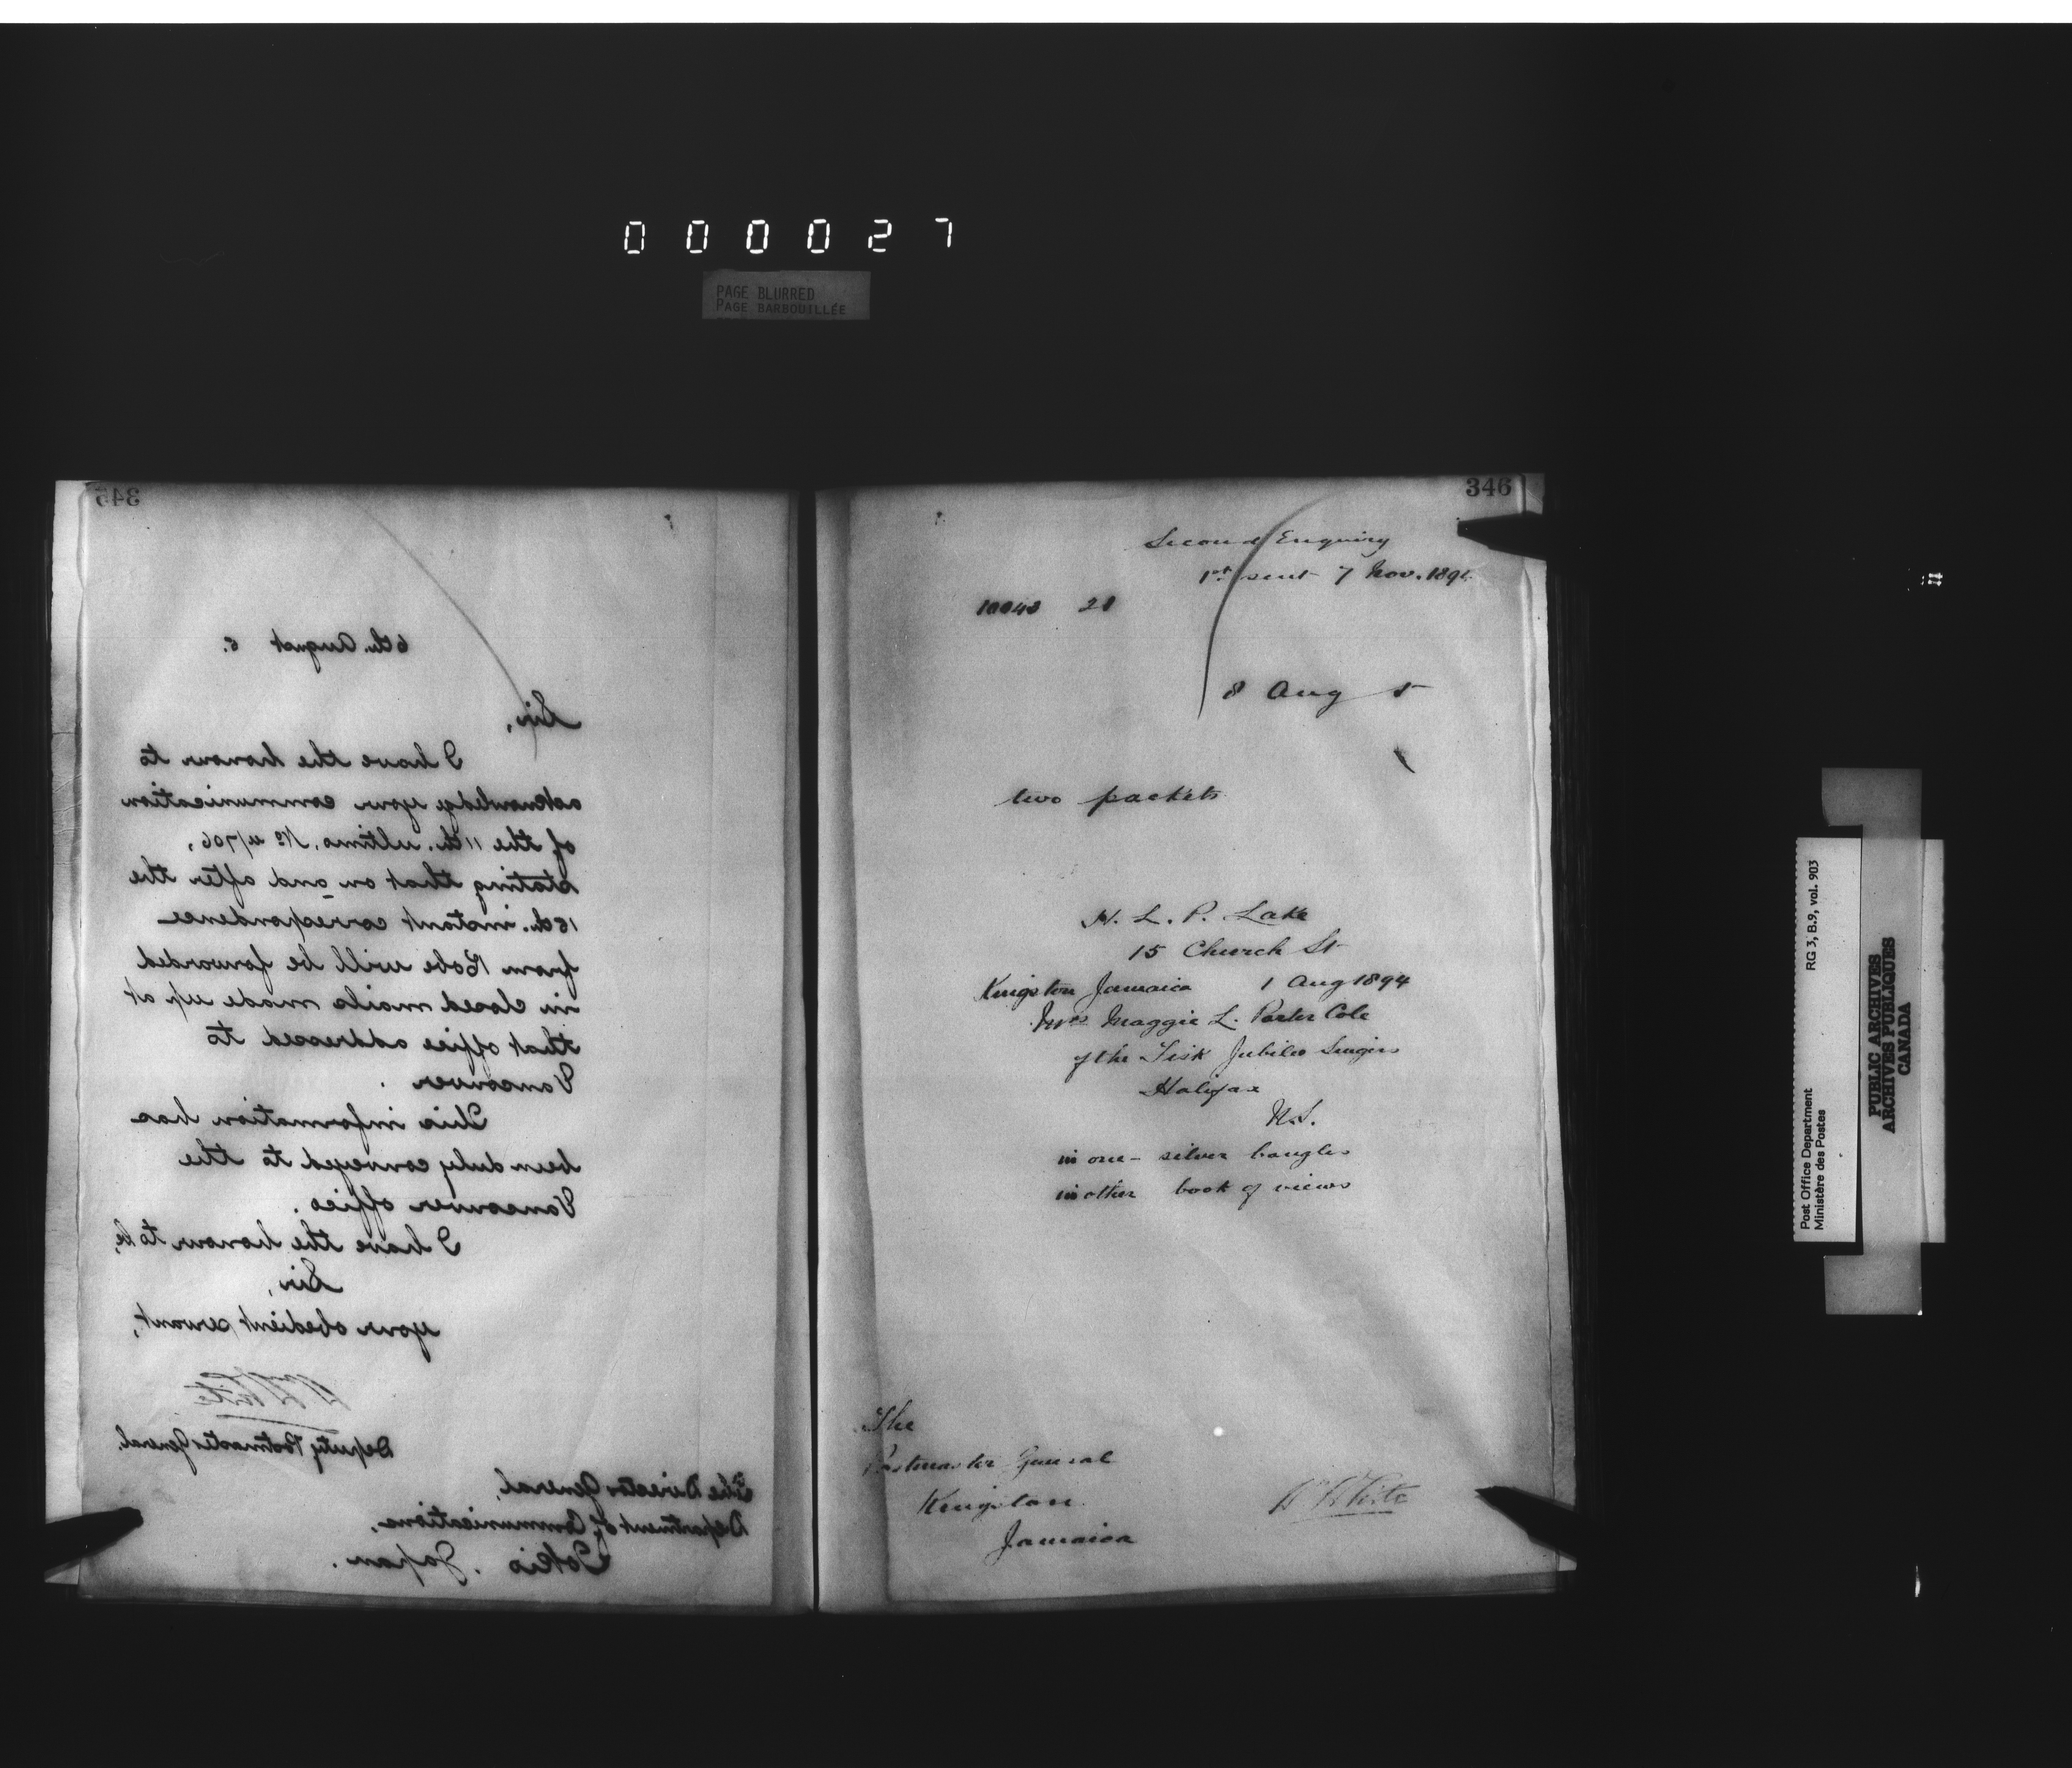 0 0 0 0 2 7
PAGE BLURRED
PAGE BARBOUILLÉE
345
6th. August 5.
Sir,
I have the honour to
acknowledge your communication
of the 11th. ultimo, No 4/706,
stating that on and after the
15th. instant correspondence
from Kobe will be forwarded
in closed mails made up at
that office addressed to
Vancouver.
This information has
been duly conveyed to the
Vancouver office.
I have the honour to be,
Sir,
your obedient servant,
W White
Deputy Postmaster General.
The Director General,
Department of Communications,
Tokio. Japan.
346
Second Enquiry
1st sent 7 Nov. 1894
10042 28
8 Aug 5
two packets
H. L. P. Lake
15 Church St
Kingston Jamaica 1 Aug 1894
Mrs Maggie L. Porter Cole
of the Fisk Jubilee Singers
Halifax
N.S.
in one - silver bangles
in other book of views
The
Postmaster General
Kingston
Jamaica
W White
Post Office Department
Ministère des Postes
RG 3, B.9, vol. 903
PUBLIC ARCHIVES
ARCHIVES PUBLIQUES
CANADA